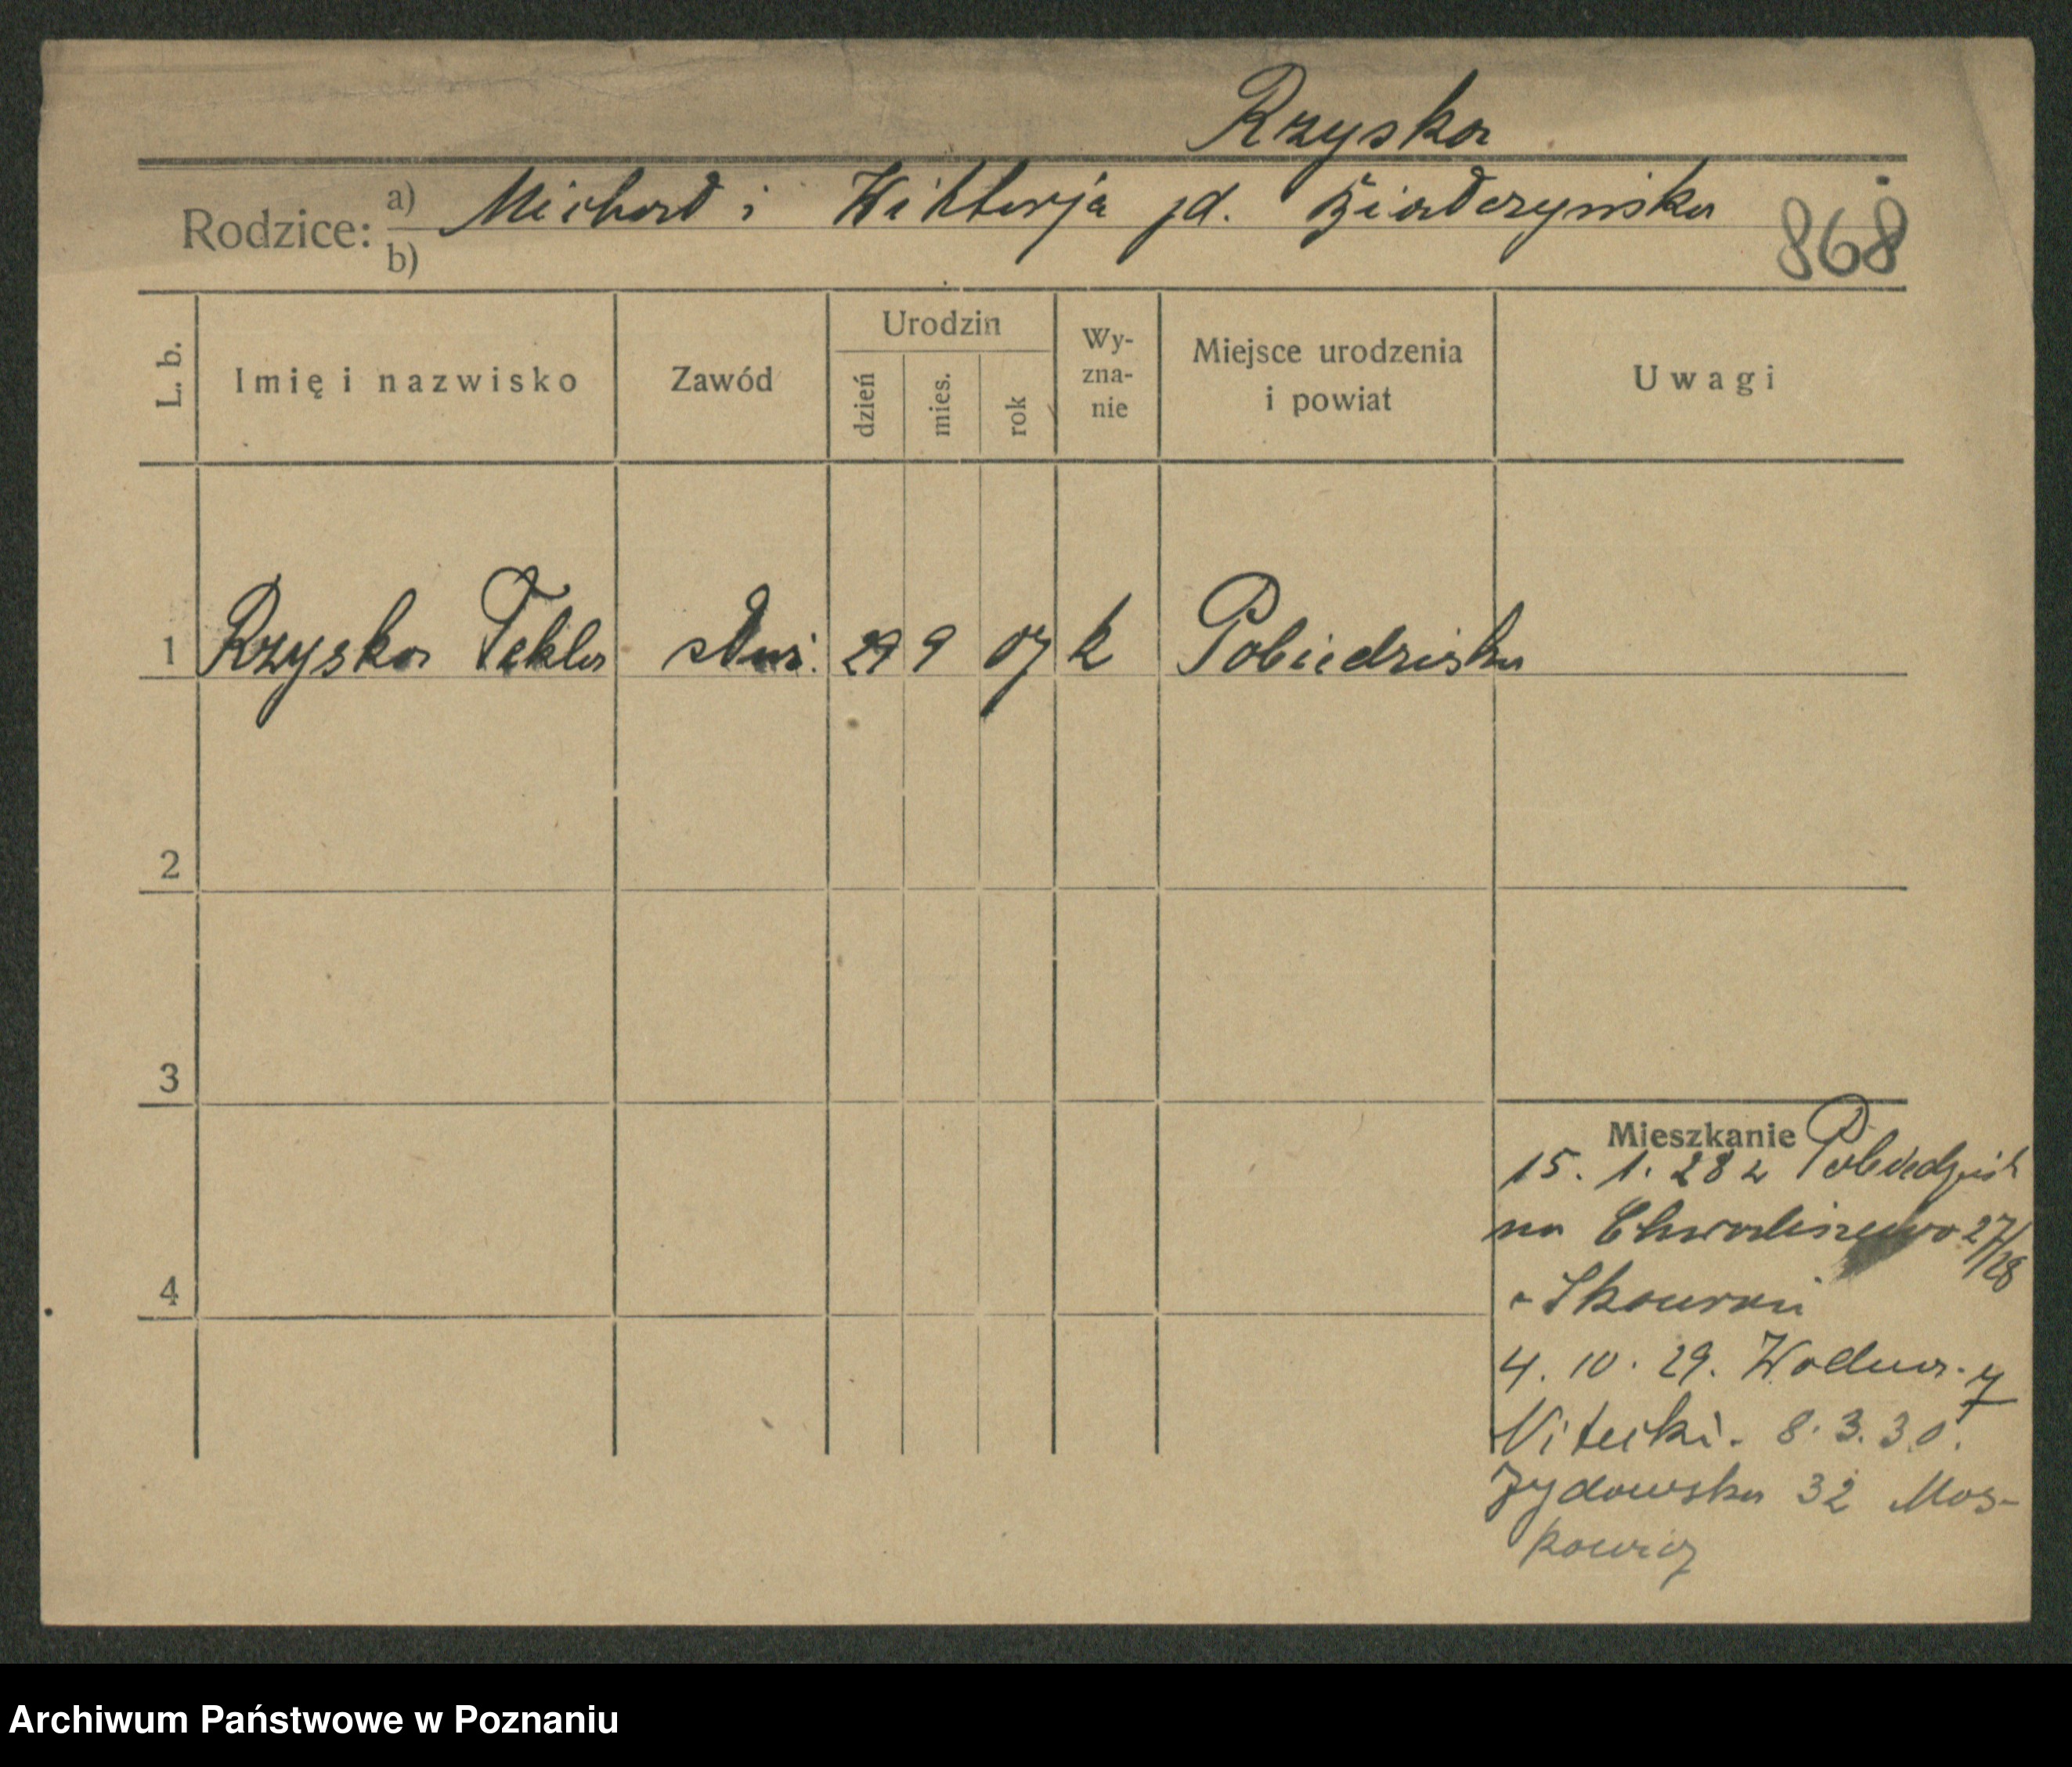 Rzyska
Rodzice: a) Michał i Wiktorja jd. Białczyńska
b)
868
L. b.
Imię i nazwisko
Zawód
Urodzin
dzień
mies.
rok
Wy-
zna-
nie
Miejsce urodzenia
i powiat
Uwagi
1 Rzyska Tekla służ. 29 9 07 k Pobiedziska
2
3
4
Mieszkanie
15. 1. 28 z Pobiedzisk
na Chwaliszewo 27/28
4. 10. 29. Wodna 7
Nitecki. 8. 3. 30.
Żydowska 32 Mos-
kowicz
Archiwum Państwowe w Poznaniu